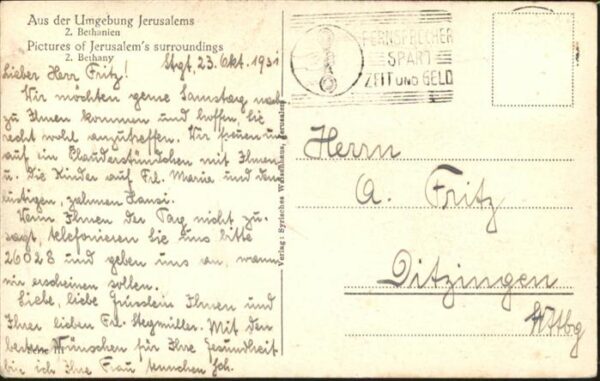 Aus der Umgebung Jerusalems
2. Bethanien
Pictures of Jerusalem's surroundings
2. Bethany
Stgt, 23. Okt. 1931
Lieber Herr Fritz!
Wir möchten gerne Samstag nach
zu Ihnen kommen und hoffen, Sie
recht wohl anzutreffen. Wir freuen uns
auf ein Plauderstündchen mit Ihnen
u. die Kinder auf Frl. Maria und den
lustigen, zahmen Hansi.
Wenn Ihnen der Tag nicht zu-
sagt, telefonieren Sie uns bitte
26028 und geben uns an, wann
wir erscheinen sollen.
Liebe, liebe Grüsslein Ihnen und
Ihrer lieben Frl. Stegmüller. Mit den
besten Wünschen für Ihre Gesundheit
bin ich Ihre Frau
Verlag: Syrisches Waisenhaus, Jerusalem
FERNSPRECHER
SPART
ZEIT UND GELD
Herrn
A. Fritz
Ditzingen
Wttbg